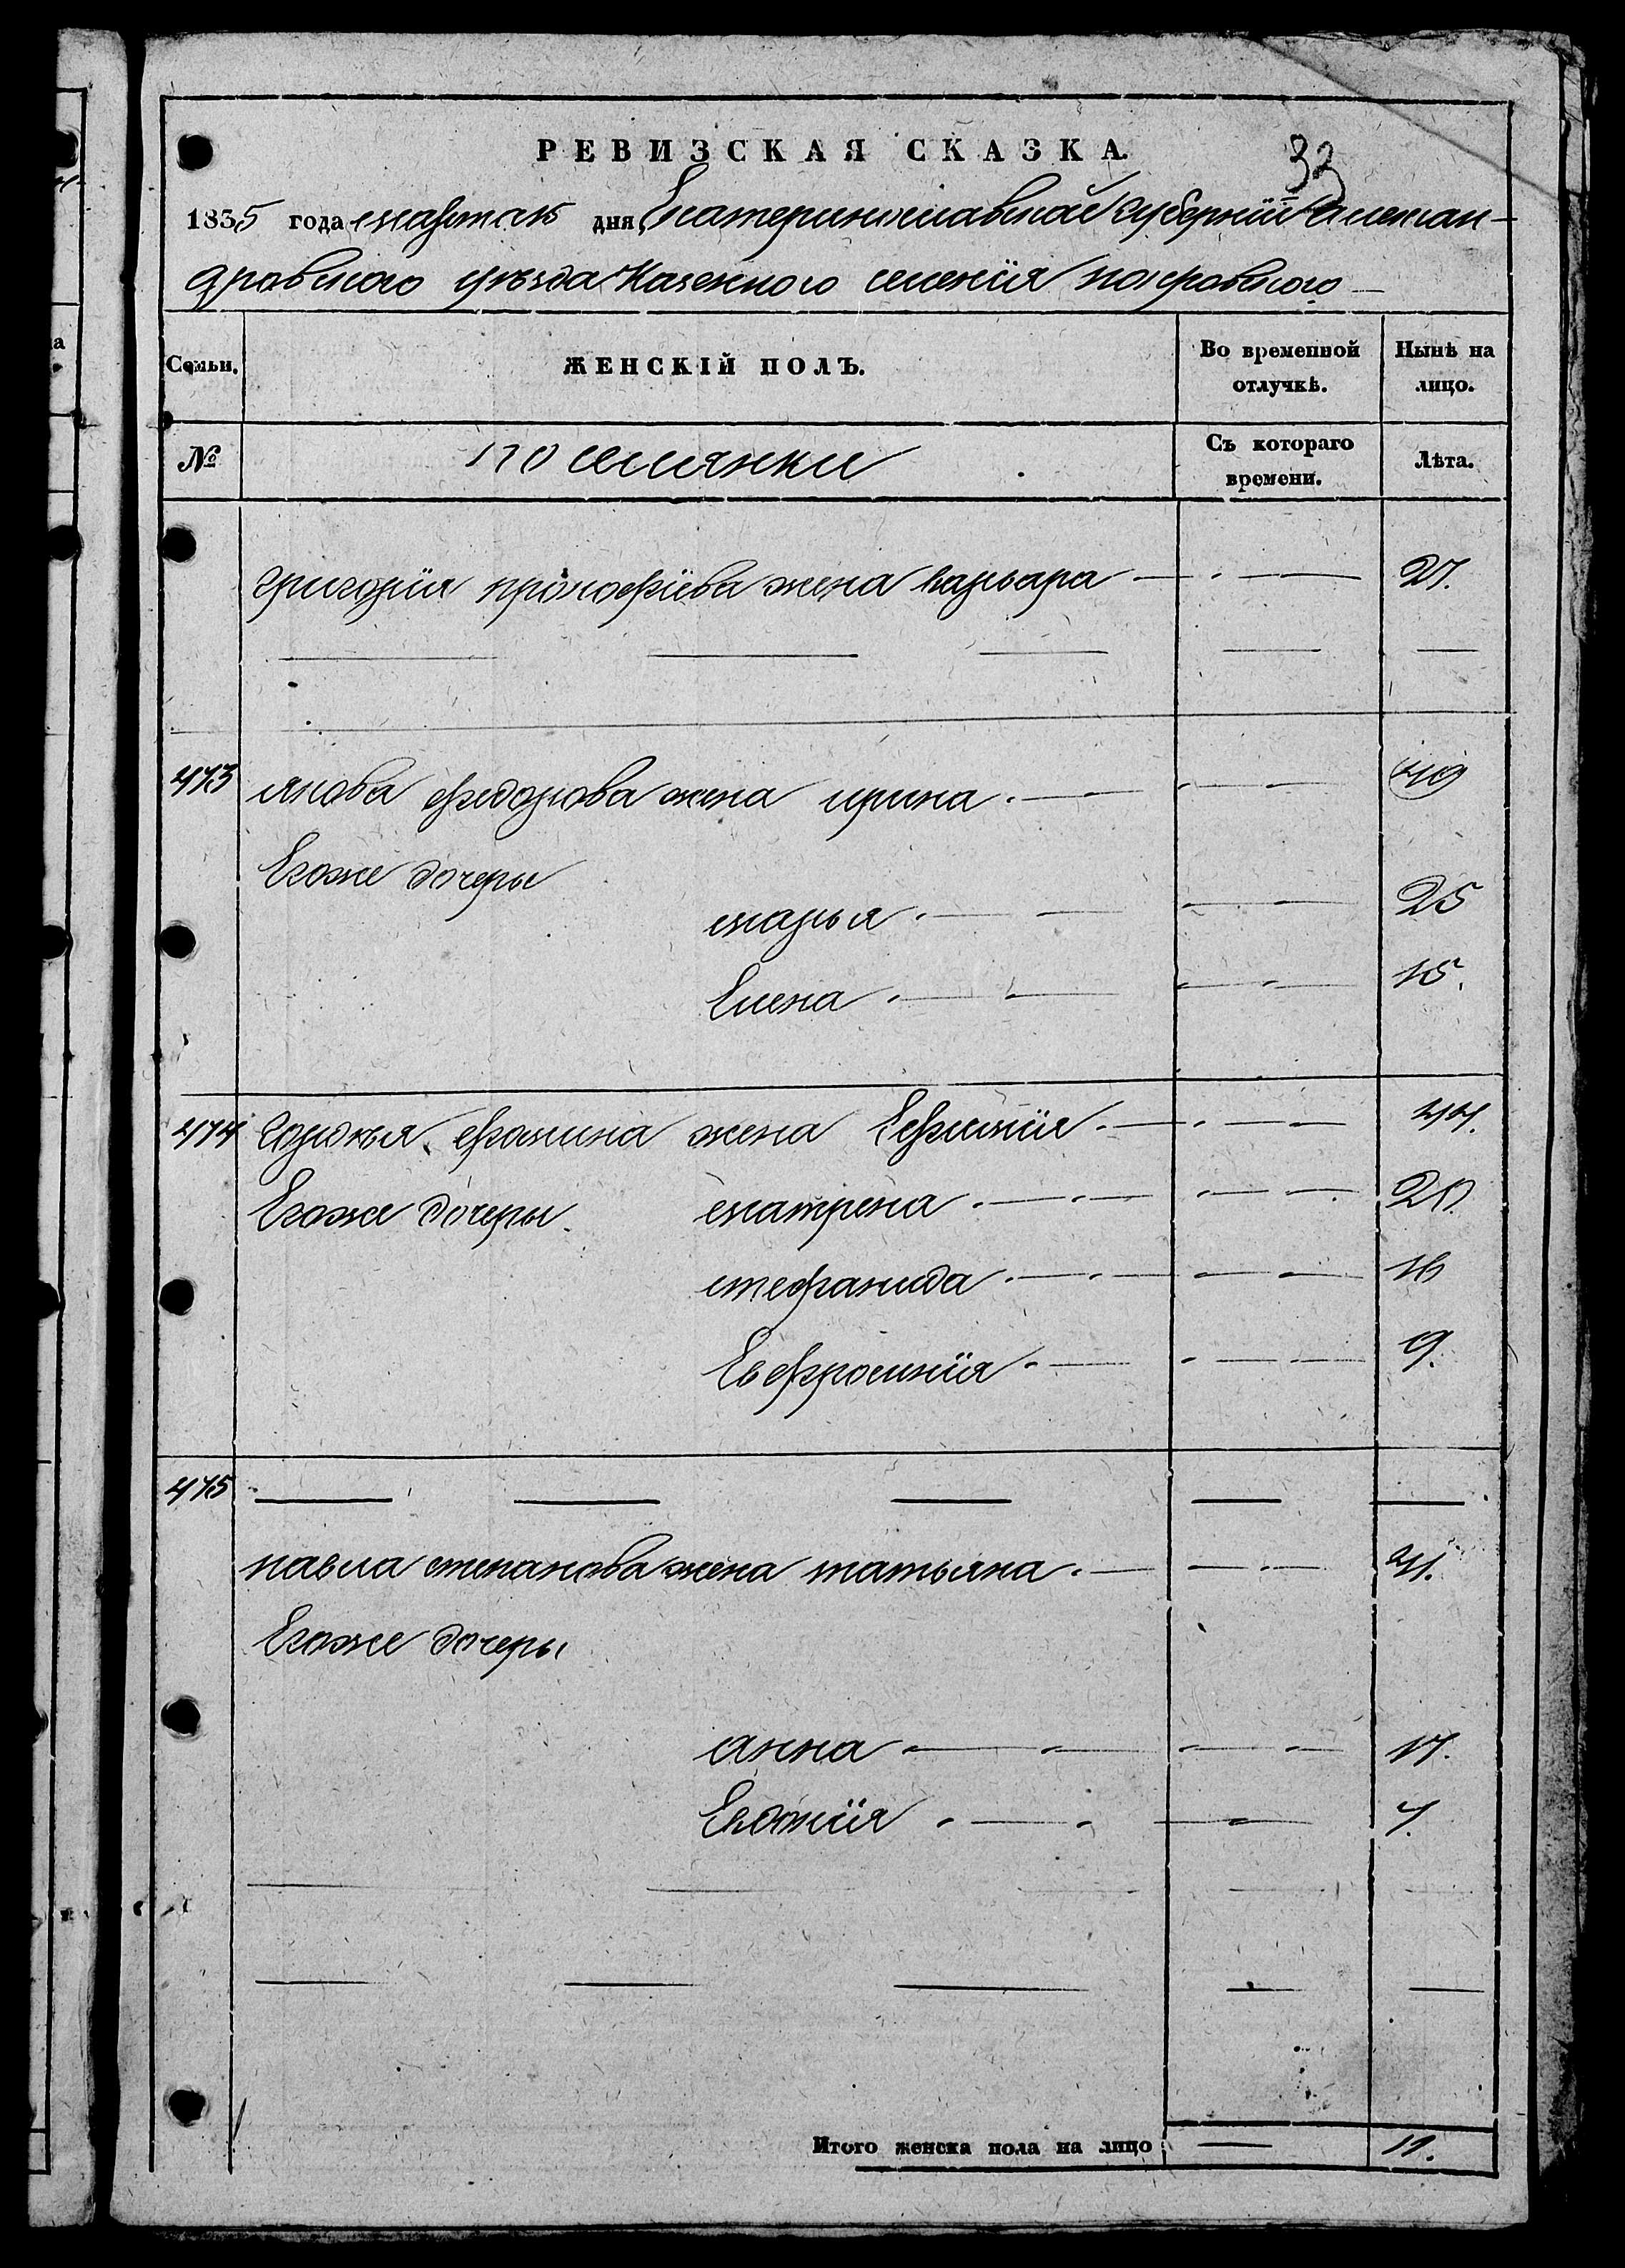 РЕВИЗСКАЯ СКАЗКА.
33
1835 года марта 15 дня Екатеринославской губернïи Алексан-
дровского уѣзда Казенного селенïя покровского
Семьи.
ЖЕНСКІЙ ПОЛЪ.
Во временной отлучкѣ.
Нынѣ на лицо.
№
поселянки
Съ котораго времени.
Лѣта.
григорïя прокофïева жена варвара 27.
473 якова федорова жена ирина 49
Егоже дочеры
марья 25
Елена 15.
474 фомина жена Ефимïя 44.
Егоже дочеры матрена 20
стефанида 16
Евфросинïя 9.
475
павла степанова жена татьяна 41.
Егоже дочеры
анна 17.
Евдокïя 7.
Итого женска пола на лицо 11.